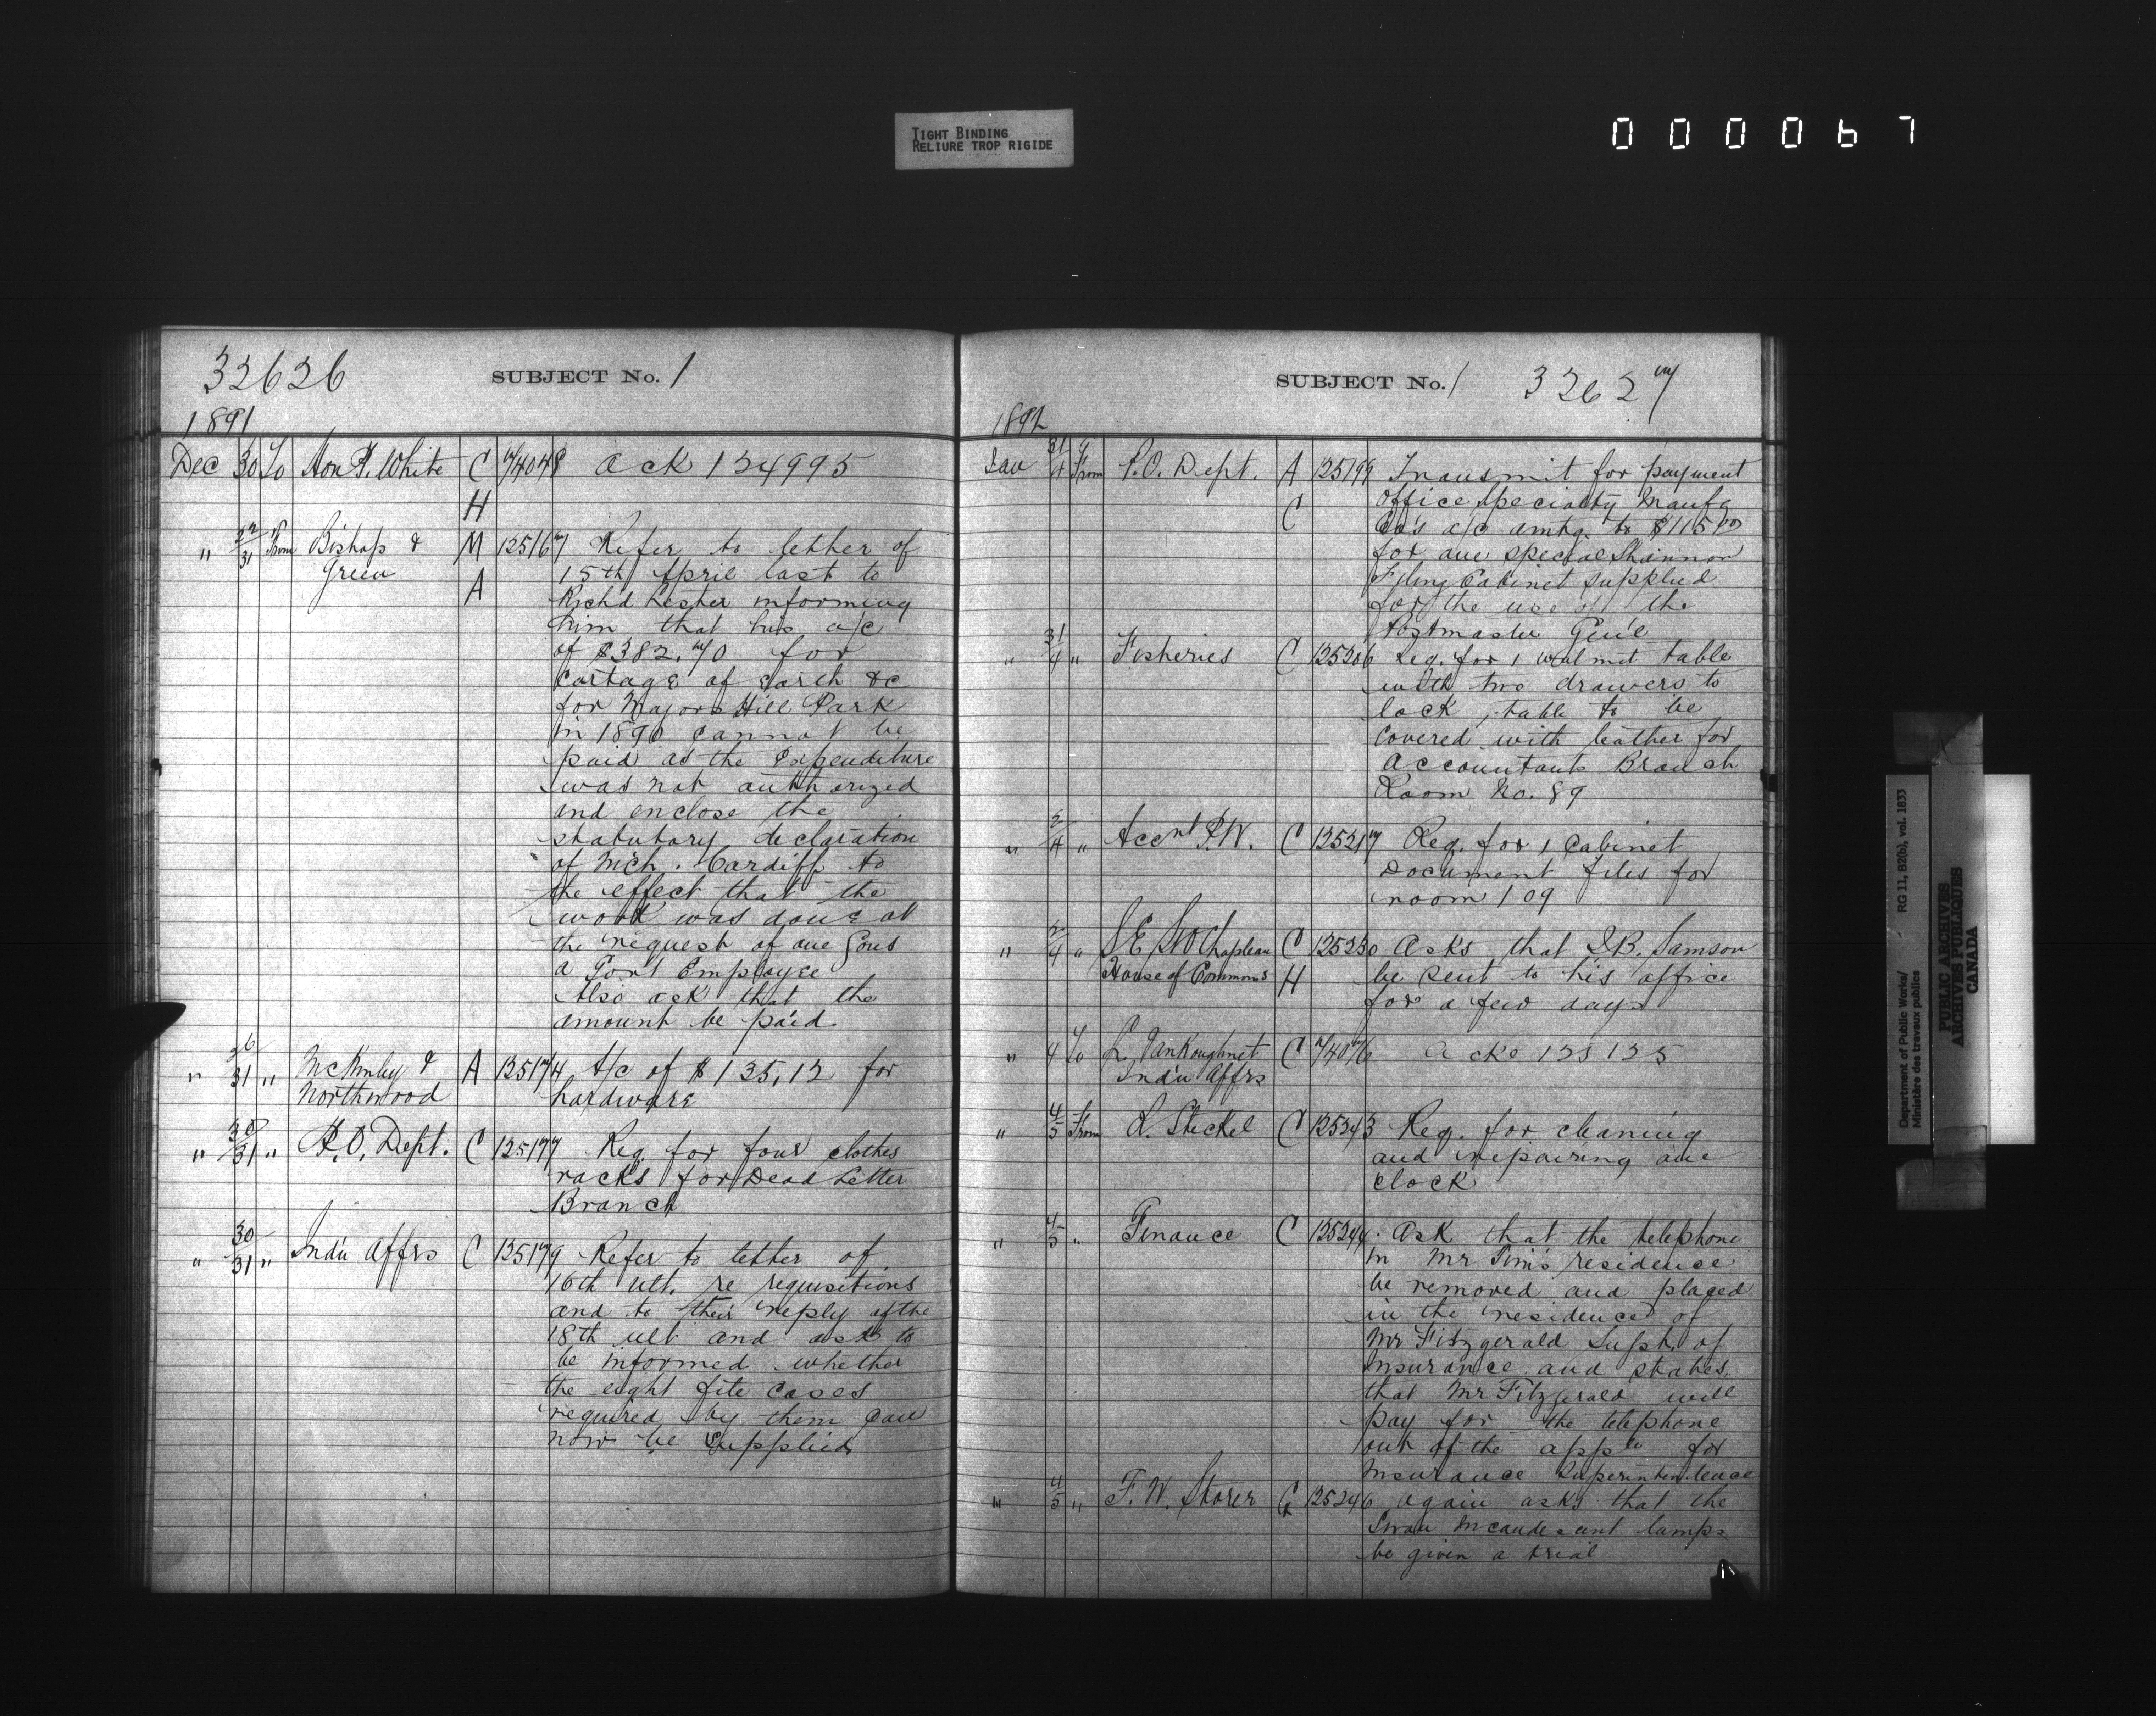 TIGHT BINDING
RELIURE TROP RIGIDE
000067
32626 SUBJECT No. 1
1891
Dec 30 To Hon P. White C H 74048 Ack 124995
" 22/31 From Bishop & Green M A 125167 Refer to letter of
15th April last to
Richd Lester informing
him that his a/c
of $382.70 for
Cartage of earth &c
for Majors Hill Park
in 1890 cannot be
paid as the Expenditure
was not authorized
and enclose the
statutory declaration
of Mich. Cardiff to
the effect that the
work was done at
the request of one Gous
a Govt Employee
Also ask that the
amount be paid
" 26/31 " McKinley & Northwood A 125174 A/c of $125,12 for
hardware
" 30/31 " P.O. Dept. C 125177 Req. for four clothes
racks for Dead Letter
Branch
" 30/31 " Ind'n Affrs C 125179 Refer to letter of
16th ult. re requisitions
and to their reply of the
18th ult and ask to
be informed whether
the eight file cases
required by them can
now be supplied
SUBJECT No. 1 32627
1892
Jan 31/4 From P.O. Dept. A C 125199 Transmit for payment
Office Specialty Manufg
Co's a/c amtg. to $115.00
for one special Shannon
Fyling Cabinet supplied
for the use of the
Postmaster Gen'l
" 31/4 " Fisheries C 125206 Req. for 1 walnut table
with two drawers to
lock, table to be
covered with leather for
Accountants Branch
Room No. 89
" 2/4 " Accnt P.W. C 125217 Req. for 1 Cabinet
Document Files for
room 109
" 2/4 " S E St O Chapleau House of Commons C H 125230 Asks that J.B. Samson
be sent to his office
for a few days
" 4 To L. VanKoughnet Ind'n Affrs C 74076 Acke 125125
" 4/5 From R. Steckel C 125243 Req. for cleaning
and repairing one
clock
" 4/5 " Finance C 125244 Ask that the telephone
in Mr Tims residence
be removed and placed
in the residence of
Mr Fitzgerald Supt. of
Insurance and states
that Mr Fitzgerald will
pay for the telephone
out of the app'n for
Insurance Superintendence
" 4/5 " F.W. Storer C 125246 Again asks that the
Swan Incandescent lamps
be given a trial
Department of Public Works/
Ministère des travaux publics
RG 11, B2(b), vol. 1833
PUBLIC ARCHIVES
ARCHIVES PUBLIQUES
CANADA